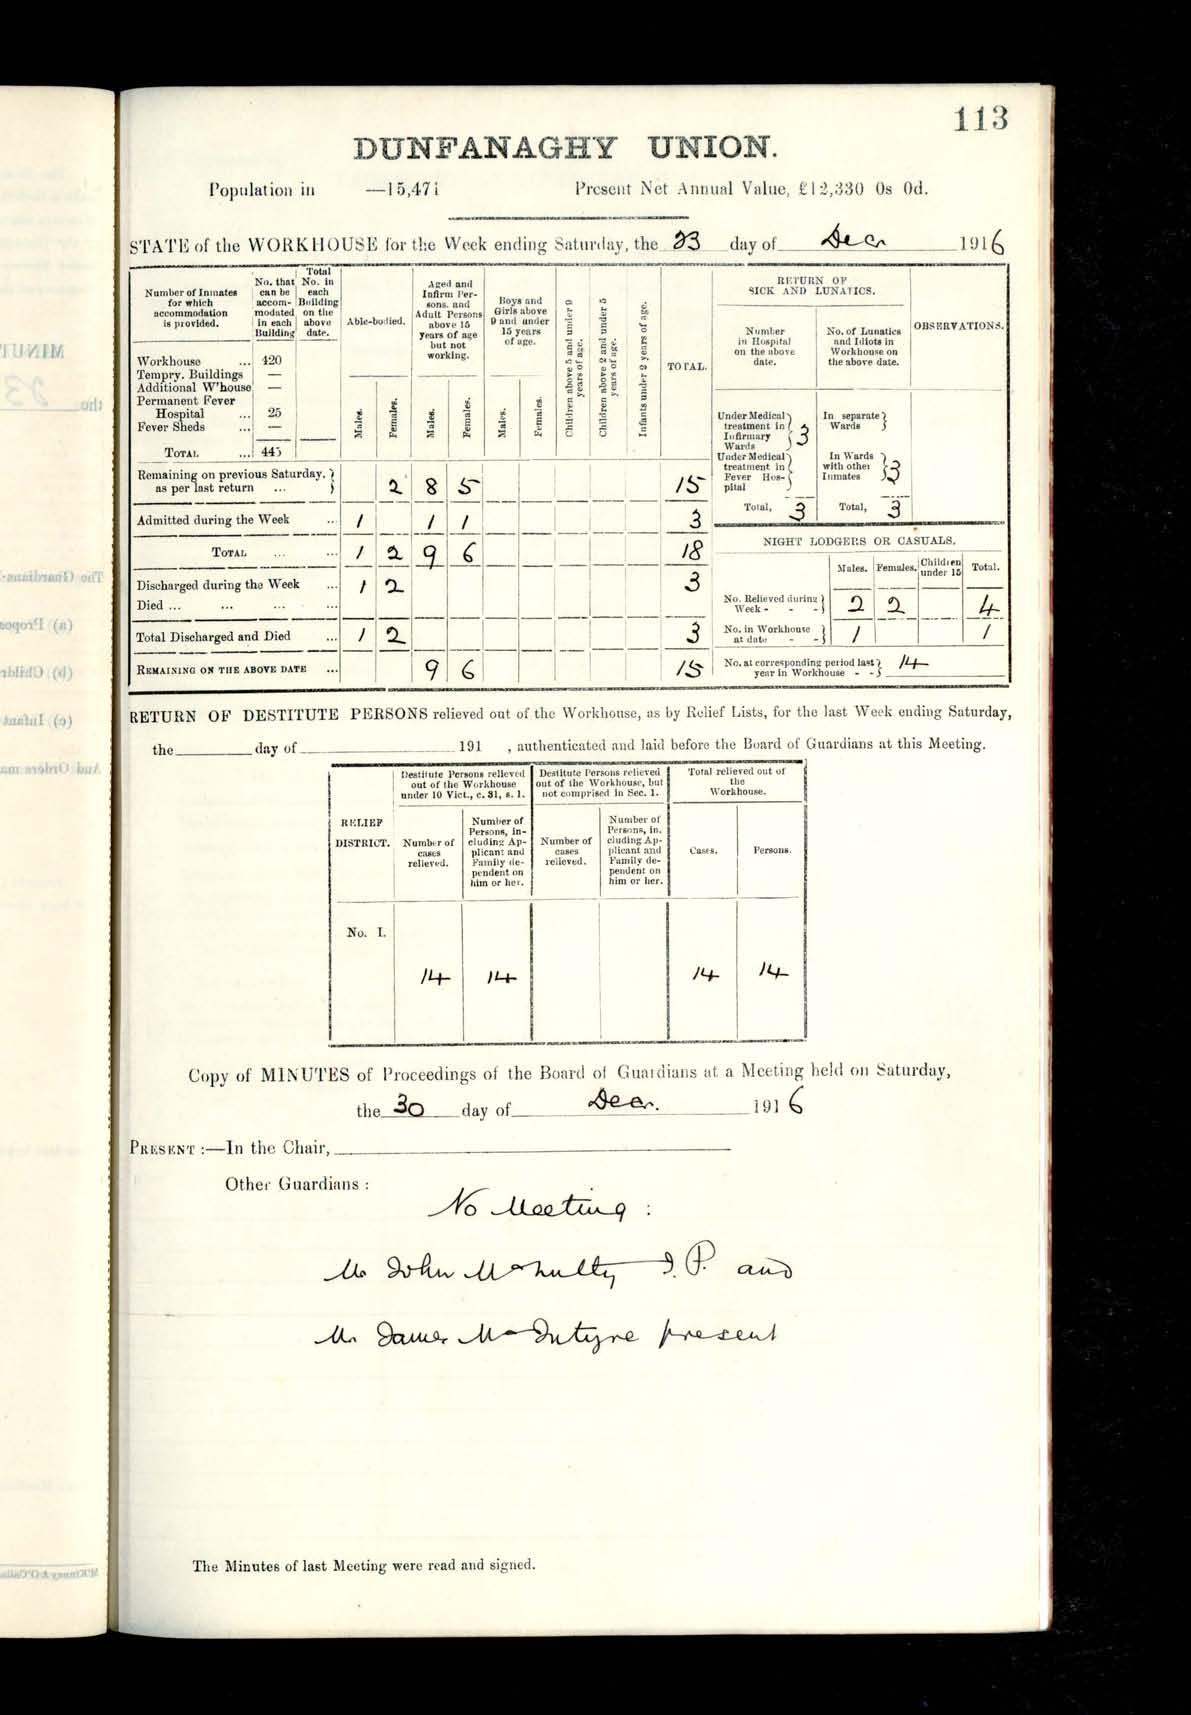 113
DUNFANAGHY UNION.
Population in —15,471 Present Net Annual Value, £12,330 0s 0d.
STATE of the WORKHOUSE for the Week ending Saturday, the 23 day of Decr 1916
Number of Inmates for which accommodation is provided. No. that can be accommodated in each Building Total No. in each Building on the above date. Able-bodied. Aged and Infirm Persons, and Adult Persons above 15 years of age but not working. Boys and Girls above 9 and under 15 years of age. Children above 5 and under 9 years of age. Children above 2 and under 5 years of age. Infants under 2 years of age. TOTAL. RETURN OF SICK AND LUNATICS. OBSERVATIONS.
Number in Hospital on the above date. No. of Lunatics and Idiots in Workhouse on the above date.
Workhouse ... 420
Tempry. Buildings —
Additional W'house —
Permanent Fever
Hospital ... 25
Fever Sheds ... —
TOTAL ... 445
Males. Females. Males. Females. Males. Females.
Under Medical treatment in Infirmary Wards } 3 In separate Wards }
Under Medical treatment in Fever Hospital } In Wards with other Inmates } 3
Total, 3 Total, 3
Remaining on previous Saturday, as per last return ... } 2 8 5 15
Admitted during the Week ... 1 1 1 3
TOTAL ... ... 1 2 9 6 18
Discharged during the Week ... 1 2 3
Died ... ... ... ...
Total Discharged and Died ... 1 2 3
REMAINING ON THE ABOVE DATE ... 9 6 15
NIGHT LODGERS OR CASUALS.
Males. Females. Children under 15 Total.
No. Relieved during Week - - - } 2 2 4
No. in Workhouse at date - - } 1 1
No. at corresponding period last year in Workhouse - - } 14
RETURN OF DESTITUTE PERSONS relieved out of the Workhouse, as by Relief Lists, for the last Week ending Saturday,
the day of 191 , authenticated and laid before the Board of Guardians at this Meeting.
RELIEF DISTRICT. Destitute Persons relieved out of the Workhouse under 10 Vict., c. 31, s. 1. Destitute Persons relieved out of the Workhouse, but not comprised in Sec. 1. Total relieved out of the Workhouse.
Number of cases relieved. Number of Persons, including Applicant and Family dependent on him or her. Number of cases relieved. Number of Persons, in. cluding Applicant and Family dependent on him or her. Cases. Persons.
No. I.
14 14 14 14
Copy of MINUTES of Proceedings of the Board of Guardians at a Meeting held on Saturday,
the 30 day of Decr. 1916
PRESENT :—In the Chair,
Other Guardians :
No Meeting :
Mr John McNulty J.P. and
Mr James McIntyre present
The Minutes of last Meeting were read and signed.